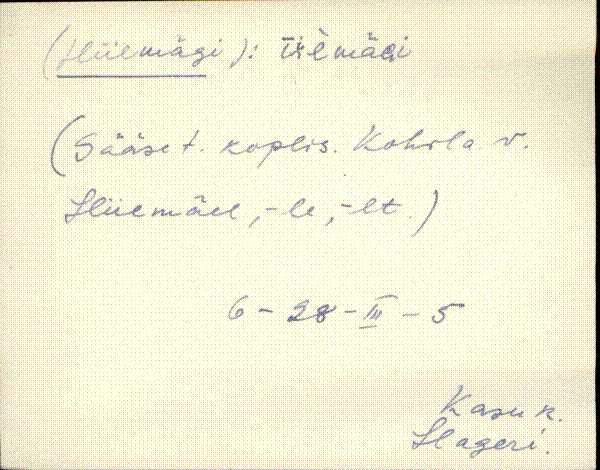 (Hiiemägi): iiemäGi
(Sääse t. koplis. Kohila v.
Hiiemäel, -le, -lt.)
6 - 28 - III - 5
Kasu k.
Hageri.